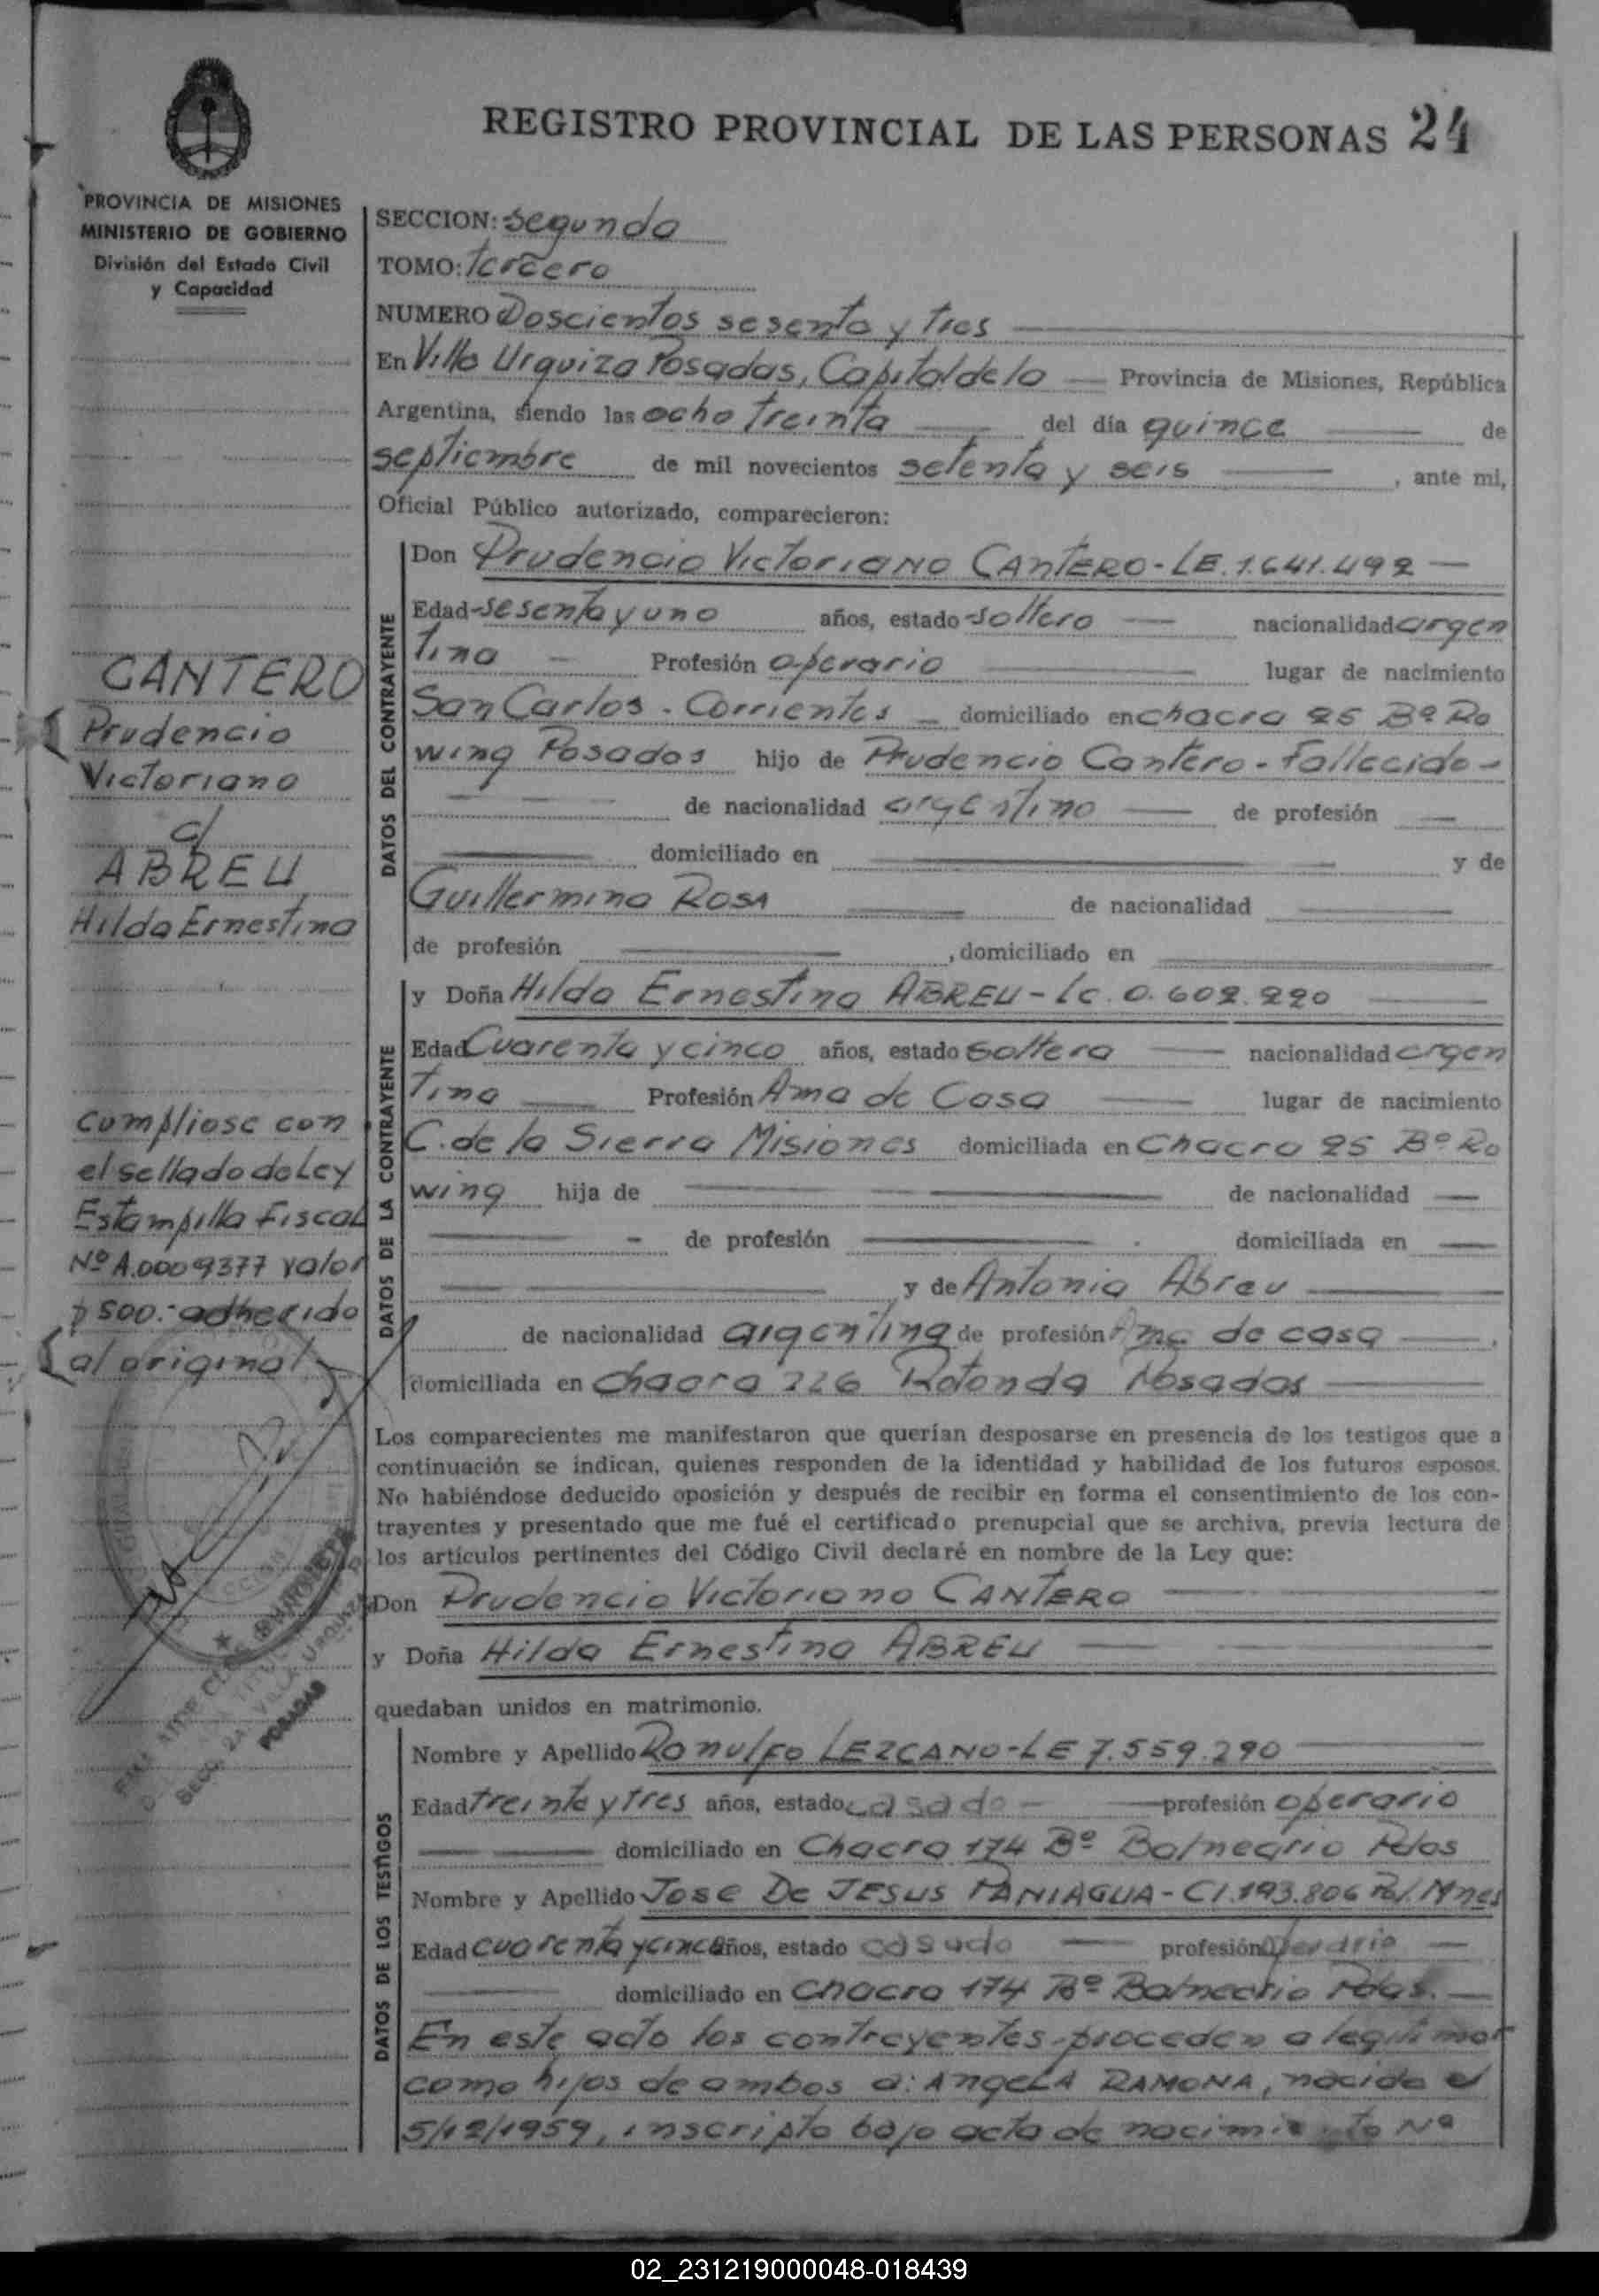 REGISTRO PROVINCIAL DE LAS PERSONAS 24
PROVINCIA DE MISIONES
MINISTERIO DE GOBIERNO
División del Estado Civil
y Capacidad
SECCION: segunda
TOMO: tercero
NUMERO Doscientos sesenta y tres
En Villa Urquiza Posadas, Capital de la Provincia de Misiones, República
Argentina, siendo las ocho treinta del día quince de
septiembre de mil novecientos setenta y seis, ante mi,
Oficial Público autorizado, comparecieron:
DATOS DEL CONTRAYENTE
Don Prudencio Victoriano CANTERO - LE. 1.641.492
Edad sesenta y uno años, estado soltero nacionalidad argen
tina Profesión operario lugar de nacimiento
San Carlos - Corrientes domiciliado en chacra 25 Bº Ro
wing Posadas hijo de Prudencio Cantero - Fallecido -
de nacionalidad argentino de profesión
domiciliado en y de
Guillermina ROSA de nacionalidad
de profesión , domiciliado en
CANTERO
Prudencio
Victoriano
c/
ABREU
Hilda Ernestina
DATOS DE LA CONTRAYENTE
y Doña Hilda Ernestina ABREU - Lc. 0.602.220
Edad Cuarenta y cinco años, estado soltera nacionalidad argen
tina Profesión Ama de Casa lugar de nacimiento
C. de la Sierra Misiones domiciliada en Chacra 25 Bº Ro
wing hija de de nacionalidad
de profesión domiciliada en
y de Antonia Abreu
de nacionalidad argentina de profesión Ama de casa
domiciliada en chacra 226 Rotonda Posadas
Cumpliose con
el sellado de Ley
Estampilla Fiscal
Nº A.0009377 valor
$ 500.- adherido
al original
Los comparecientes me manifestaron que querían desposarse en presencia de los testigos que a
continuación se indican, quienes responden de la identidad y habilidad de los futuros esposos.
No habiéndose deducido oposición y después de recibir en forma el consentimiento de los con-
trayentes y presentado que me fué el certificado prenupcial que se archiva, previa lectura de
los artículos pertinentes del Código Civil declaré en nombre de la Ley que:
Don Prudencio Victoriano CANTERO
y Doña Hilda Ernestina ABREU
quedaban unidos en matrimonio.
SECC. 2A. VILLA URQUIZA
POSADAS
DATOS DE LOS TESTIGOS
Nombre y Apellido Ronulfo LEZCANO - LE 7.559.290
Edad treinta y tres años, estado casado profesión operario
domiciliado en Chacra 174 Bº Balneario Pdas
Nombre y Apellido Jose De JESUS PANIAGUA - CI. 193.806 Pol. Mnes
Edad cuarenta y cinco años, estado casado profesión operario
domiciliado en chacra 174 Bº Balneario Pdas.
En este acto los contrayentes proceden a legitimar
como hijos de ambos a: ANGELA RAMONA, nacida el
5/12/1959, inscripta bajo acta de nacimiento Nº
02_231219000048-018439